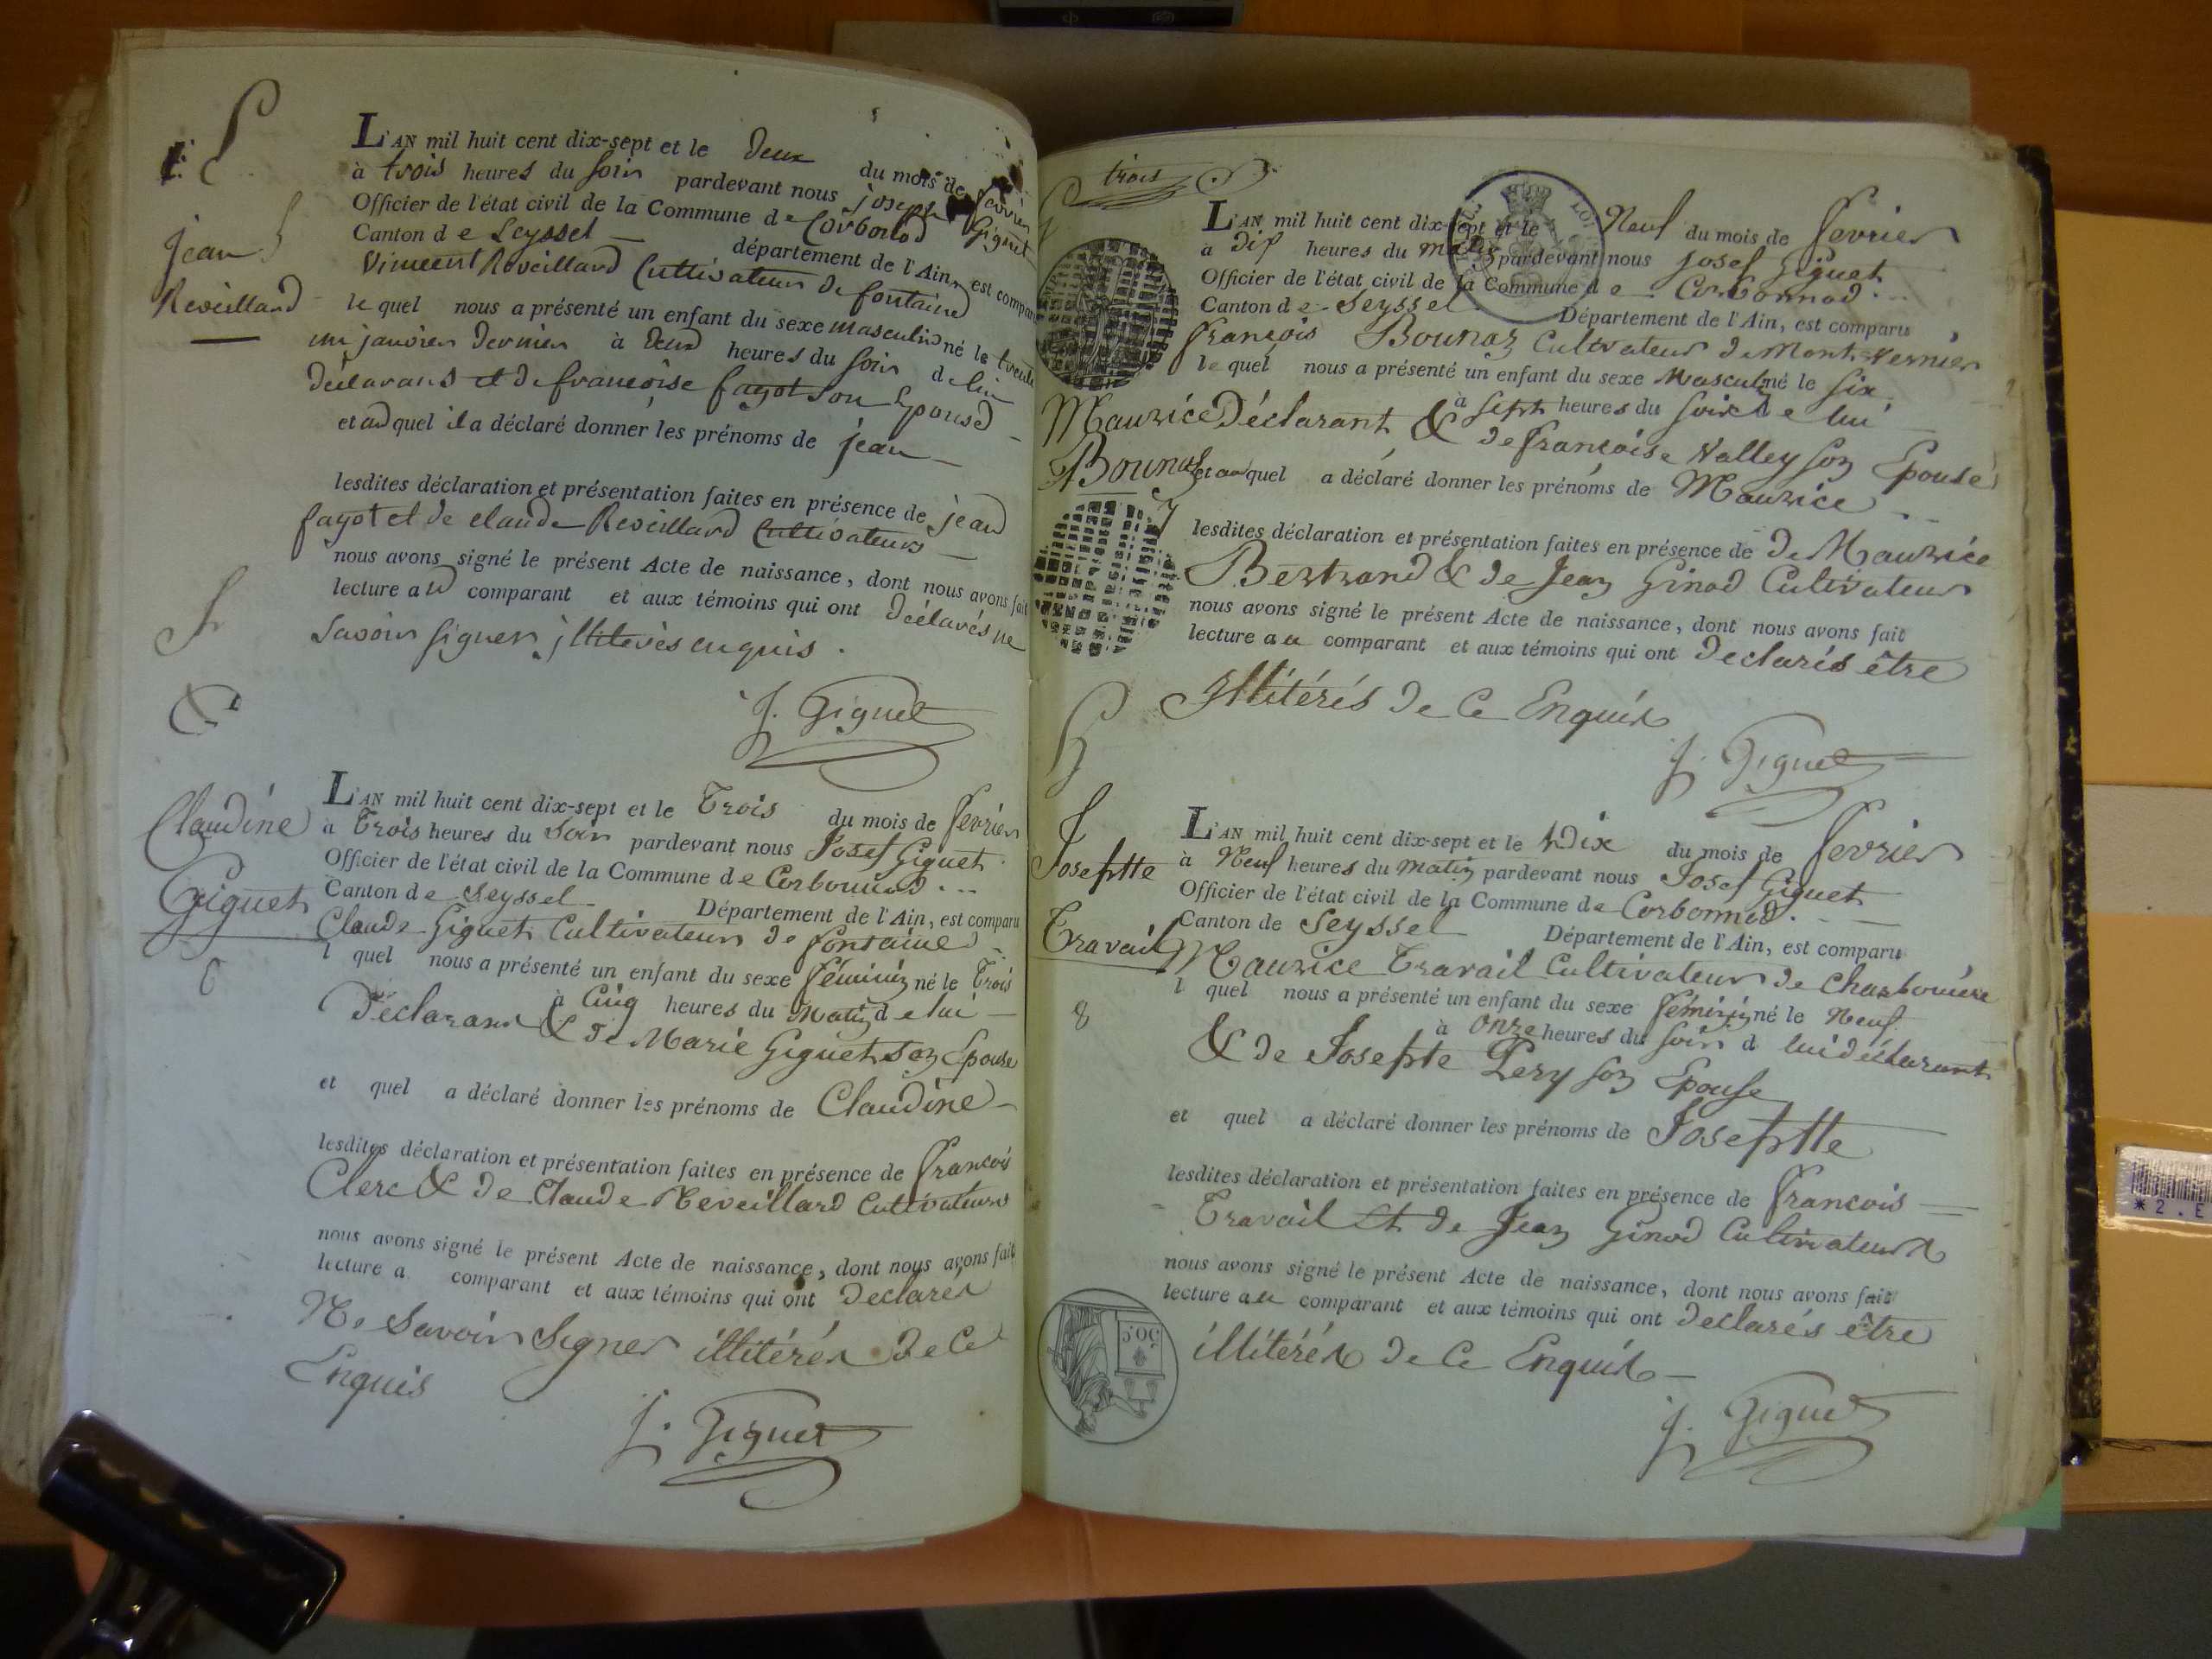 Jean
Reveillard
L'AN mil huit cent dix-sept et le deux du mois de fevrier
à trois heures du soir pardevant nous joseph Giguet
Officier de l'état civil de la Commune de Corbonod
Canton de Seyssel département de l'Ain, est comparu
Vincent Reveillard Cultivateur de fontaine
le quel nous a présenté un enfant du sexe masculin né le trente
un janvier dernier à deux heures du soir de lui
déclarant et de françoise fagot son Epouse
et au quel il a déclaré donner les prénoms de jean
lesdites déclaration et présentation faites en présence de jean
fagot et de claude Reveillard Cultivateurs
nous avons signé le présent Acte de naissance, dont nous avons fait
lecture au comparant et aux témoins qui ont déclarés ne
savoir signer illiterés enquis.
J. Giguet
Claudine
Giguet
6
L'AN mil huit cent dix-sept et le Trois du mois de fevrier
à Trois heures du Soir pardevant nous Josef Giguet
Officier de l'état civil de la Commune de Corbonnod...
Canton de Seyssel Département de l'Ain, est comparu
Claude Giguet Cultivateur de fontaine
l quel nous a présenté un enfant du sexe féminin né le Trois
à Cinq heures du Matin de lui
déclarant & de Marie Giguet son Epouse
et quel a déclaré donner les prénoms de Claudine
lesdites déclaration et présentation faites en présence de francois
Clerc & de Claude Reveillard Cutivateurs
nous avons signé le présent Acte de naissance, dont nous avons fait
lecture a comparant et aux témoins qui ont declarés
Ne Savoir Signer illitérés de Ce
Enquis
J. Giguet
trois
Maurice
Bounaz
7
L'AN mil huit cent dix-sept et le Neuf du mois de fevrier
à dix heures du matin pardevant nous Josef Giguet
Officier de l'état civil de la Commune de Corbonnod...
Canton de Seyssel Département de l'Ain, est comparu
françois Bounaz Cultivateur de Mont-Vernier
le quel nous a présenté un enfant du sexe Masculin né le six
à sept heures du soir de lui
Déclarant & de françoise Valley son Epouse
et au quel a déclaré donner les prénoms de Maurice
lesdites déclaration et présentation faites en présence de de Maurice
Bertrand & de Jean Ginod Cultivateur
nous avons signé le présent Acte de naissance, dont nous avons fait
lecture au comparant et aux témoins qui ont declarés être
Illitérés de Ce Enquis
J. Giguet
Josephte
Travail
8
L'AN mil huit cent dix-sept et le dix du mois de fevrier
à Neuf heures du matin pardevant nous Josef Giguet
Officier de l'état civil de la Commune de Corbonnod.
Canton de Seyssel Département de l'Ain, est comparu
Maurice Travail Cultivateur de Charbonière
l quel nous a présenté un enfant du sexe féminin né le Neuf
à onze heures du soir d lui déclarant
& de Josephte Pery son Epouse
et quel a déclaré donner les prénoms de Josephte
lesdites déclaration et présentation faites en présence de francois
Travail et de Jean Ginod Cultivateurs
nous avons signé le présent Acte de naissance, dont nous avons fait
lecture au comparant et aux témoins qui ont declarés être
illitérés de Ce Enquis
J. Giguet
50.C
*2.E